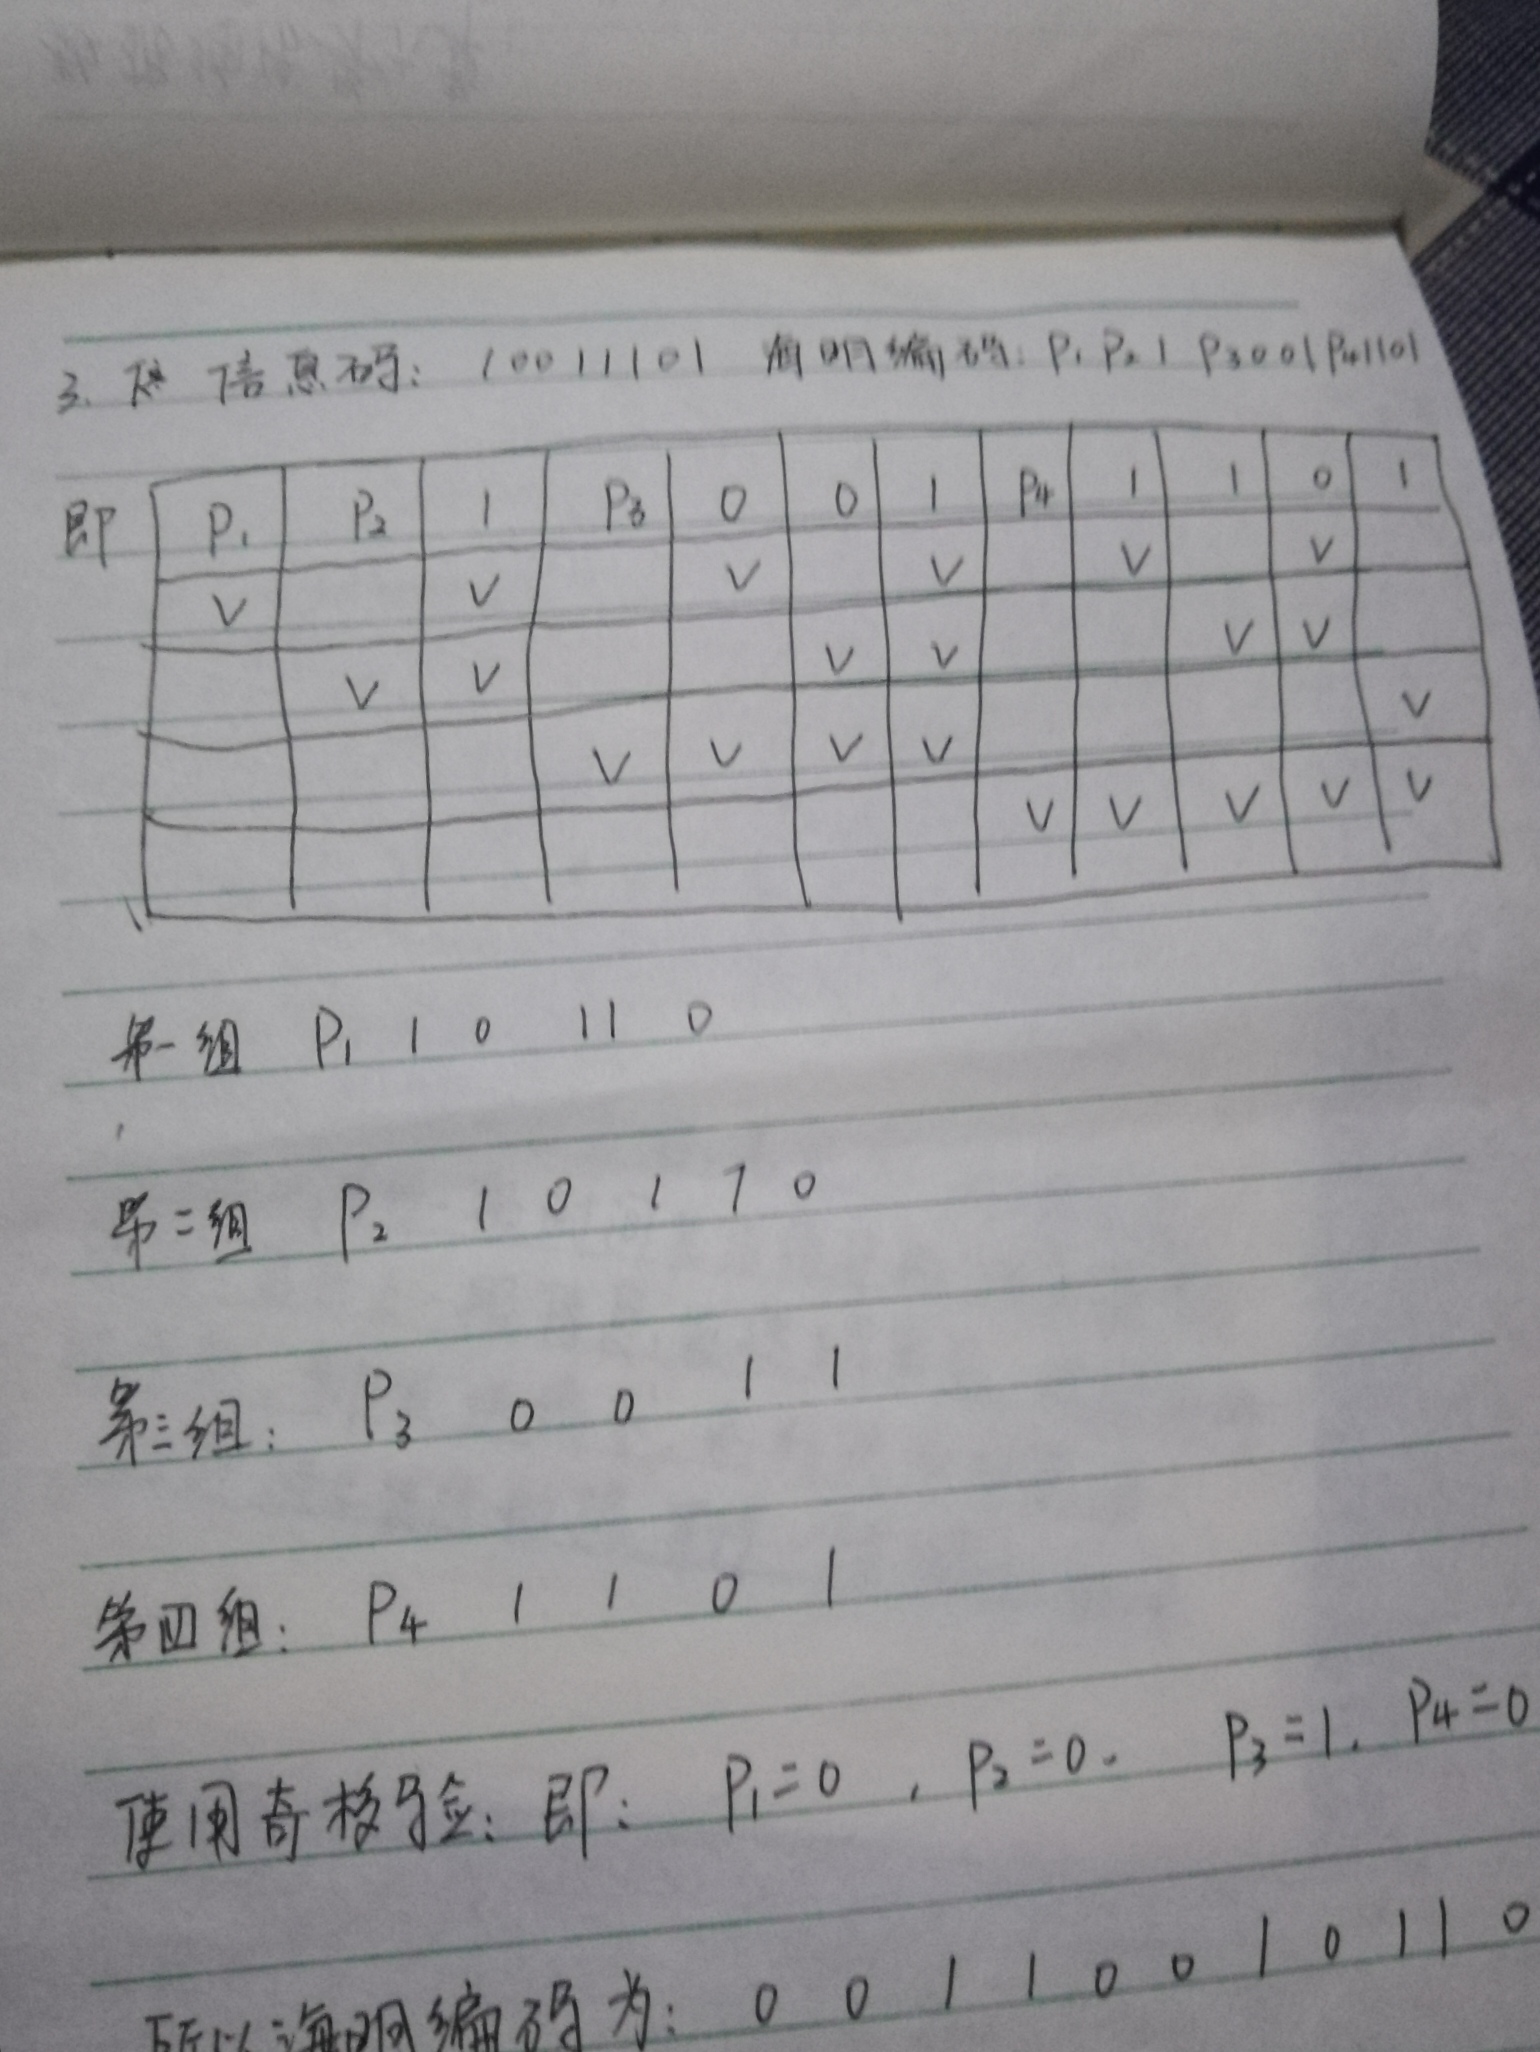 3. 信息码: 10011101 海明编码: P₁ P₂ 1 P₃ 0 0 1 P₄ 1 1 0 1
即 P₁ P₂ 1 P₃ 0 0 1 P₄ 1 1 0 1
V V V V V V
V V V V V V
V V V V V
V V V V V
第一组 P₁ 1 0 1 1 0
第二组 P₂ 1 0 1 1 0
第三组: P₃ 0 0 1 1
第四组: P₄ 1 1 0 1
使用奇校验: 即: P₁=0, P₂=0. P₃=1. P₄=0
所以海明编码为: 0 0 1 1 0 0 1 0 1 1 0